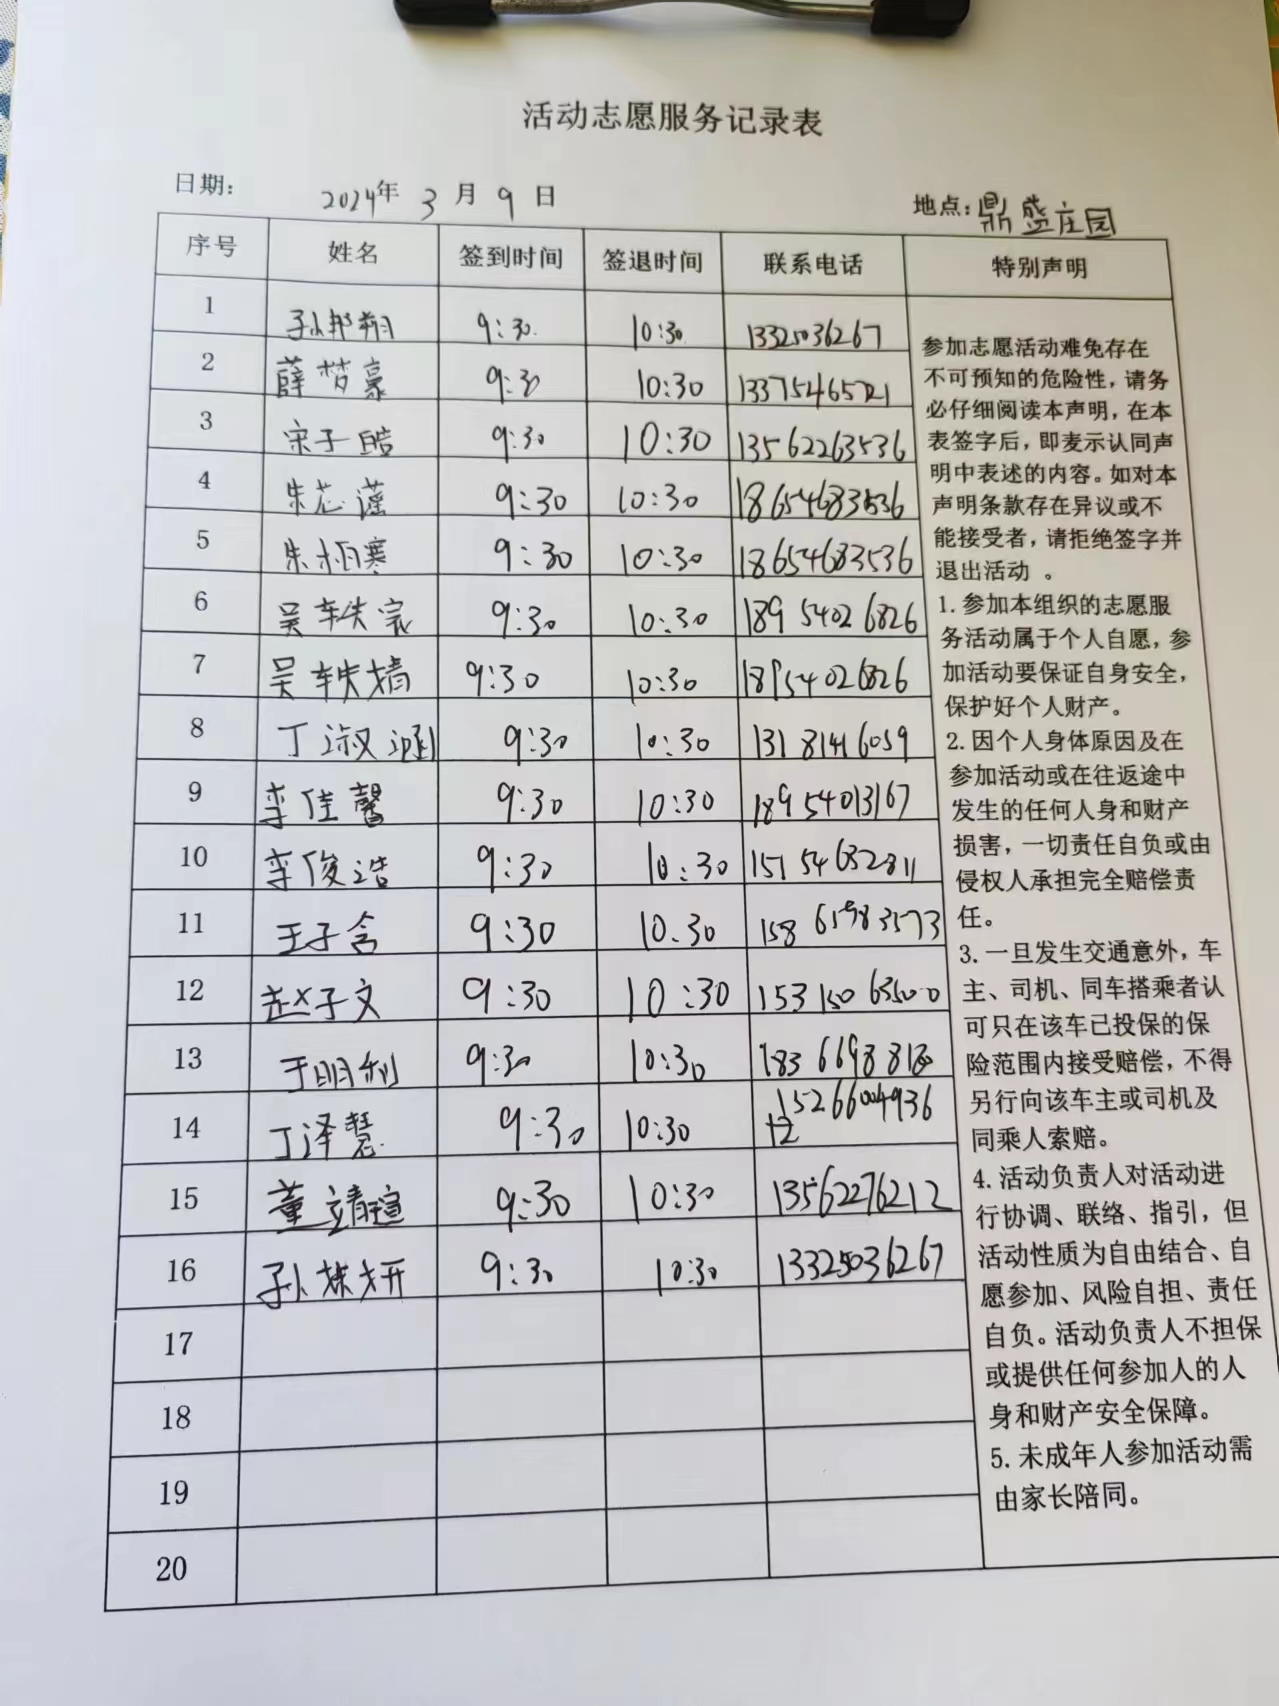 活动志愿服务记录表
日期: 2024年 3 月 9 日 地点:鼎盛庄园
序号 姓名 签到时间 签退时间 联系电话 特别声明
1 孙邦翔 9:30 10:30 13325036267
2 薛梦豪 9:30 10:30 13375465721
3 宋子皓 9:30 10:30 13562263536
4 朱芯谨 9:30 10:30 18654683536
5 朱栢寒 9:30 10:30 18654683536
6 吴轶宸 9:30 10:30 18954026826
7 吴轶婧 9:30 10:30 18954026826
8 丁淑涵 9:30 10:30 13181416059
9 李佳馨 9:30 10:30 18954013167
10 李俊浩 9:30 10:30 15154632811
11 王子含 9:30 10:30 15865983573
12 赵子文 9:30 10:30 15315063500
13 于明利 9:30 10:30
14 丁泽慧 9:30 10:30 15266004936
15 董靖瑄 9:30 10:30 13562276212
16 孙妍 9:30 10:30 13325036267
17
18
19
20
参加志愿活动难免存在
不可预知的危险性，请务
必仔细阅读本声明，在本
表签字后，即麦示认同声
明中表述的内容。如对本
声明条款存在异议或不
能接受者，请拒绝签字并
退出活动 。
1. 参加本组织的志愿服
务活动属于个人自愿，参
加活动要保证自身安全，
保护好个人财产。
2. 因个人身体原因及在
参加活动或在往返途中
发生的任何人身和财产
损害，一切责任自负或由
侵权人承担完全赔偿责
任。
3. 一旦发生交通意外，车
主、司机、同车搭乘者认
可只在该车已投保的保
险范围内接受赔偿，不得
另行向该车主或司机及
同乘人索赔。
4. 活动负责人对活动进
行协调、联络、指引，但
活动性质为自由结合、自
愿参加、风险自担、责任
自负。活动负责人不担保
或提供任何参加人的人
身和财产安全保障。
5. 未成年人参加活动需
由家长陪同。